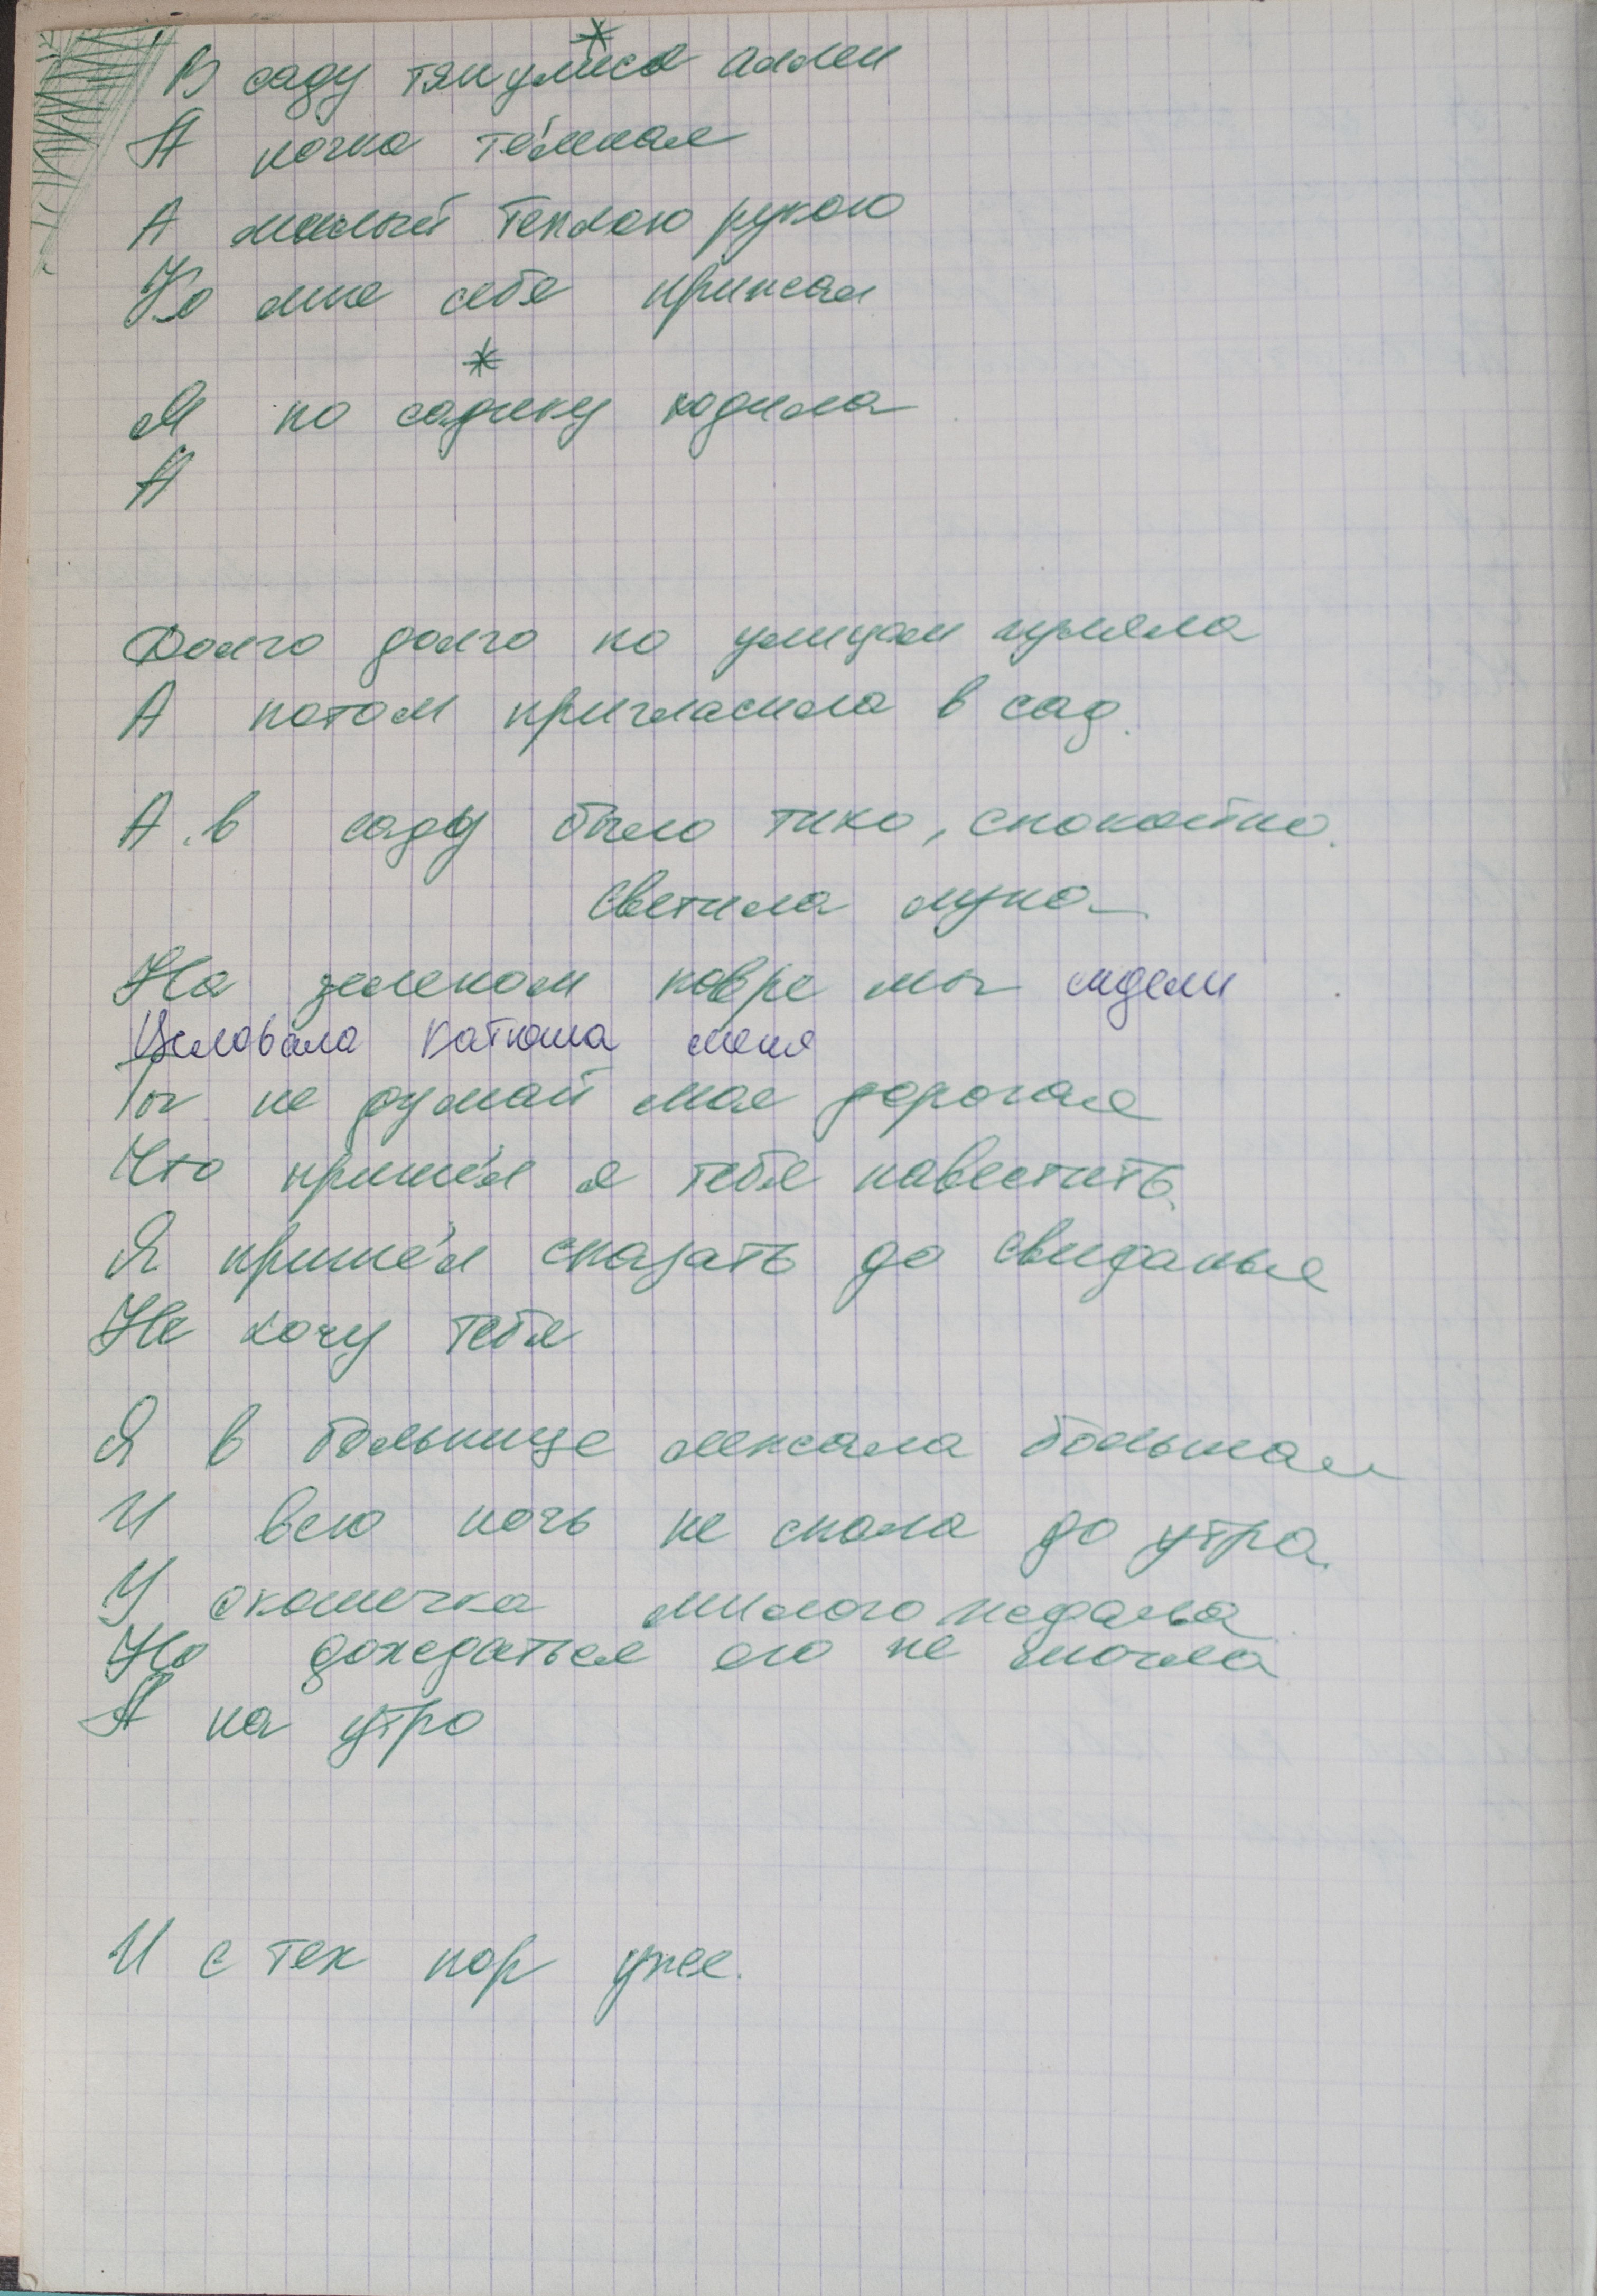 *
В саду тянулися аллеи
А ночка тёмная
А милый теплою рукою
Ко мне себя прижал
*
Я по садику ходила
А
Долго долго по улицам гуляла
А потом пригласила в сад.
А в саду было тихо, спокойно.
светила луна
На зеленом ковре мы сидели
Целовала Катюша меня
Ты не думай моя дорогая
Что пришёл я тебя навестить.
Я пришёл сказать до свиданья
Не хочу тебя
Я в больнице лежала большая
И всю ночь не спала до утра.
У окошечка милого ждала
Но дождаться его не смогла
А на утро
И с тех пор уже.